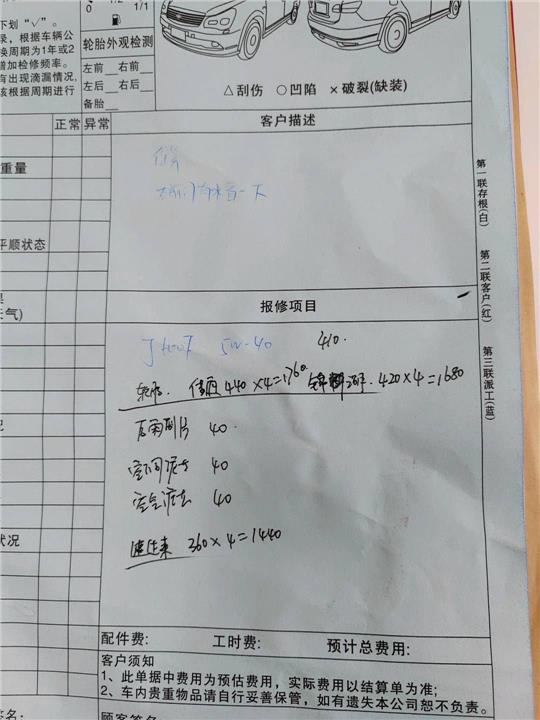 下划"√"。
录，根据车辆公
换周期为1年或2
增加检修频率。
有出现滴漏情况,
该根据周期进行
0 1/2 1/1
轮胎外观检测
左前__右前__
左后__右后__
备胎__
△刮伤 ○凹陷 ×破裂(缺装)
正常 异常
重量
平顺状态
天气)
状况
客户描述
报修项目
5W-40 410.
轮胎. 佳通 440×4=1760 420×4=1680
40.
40
空气滤 40
360×4=1440
配件费: 工时费: 预计总费用:
客户须知
1、此单据中费用为预估费用，实际费用以结算单为准;
2、车内贵重物品请自行妥善保管，如有遗失本公司恕不负责。
签名: 顾客签名
第一联存根(白)
第二联客户(红)
第三联派工(蓝)